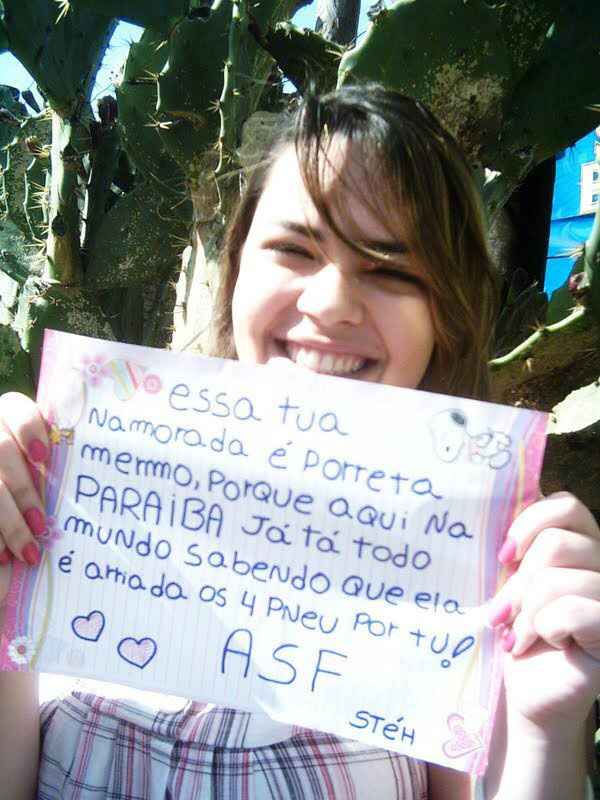 essa tua
namorada é porreta
mermo, porque aqui na
PARAIBA Já tá todo
mundo sabendo que ela
é amada os 4 pneu por tu!
ASF
STéH